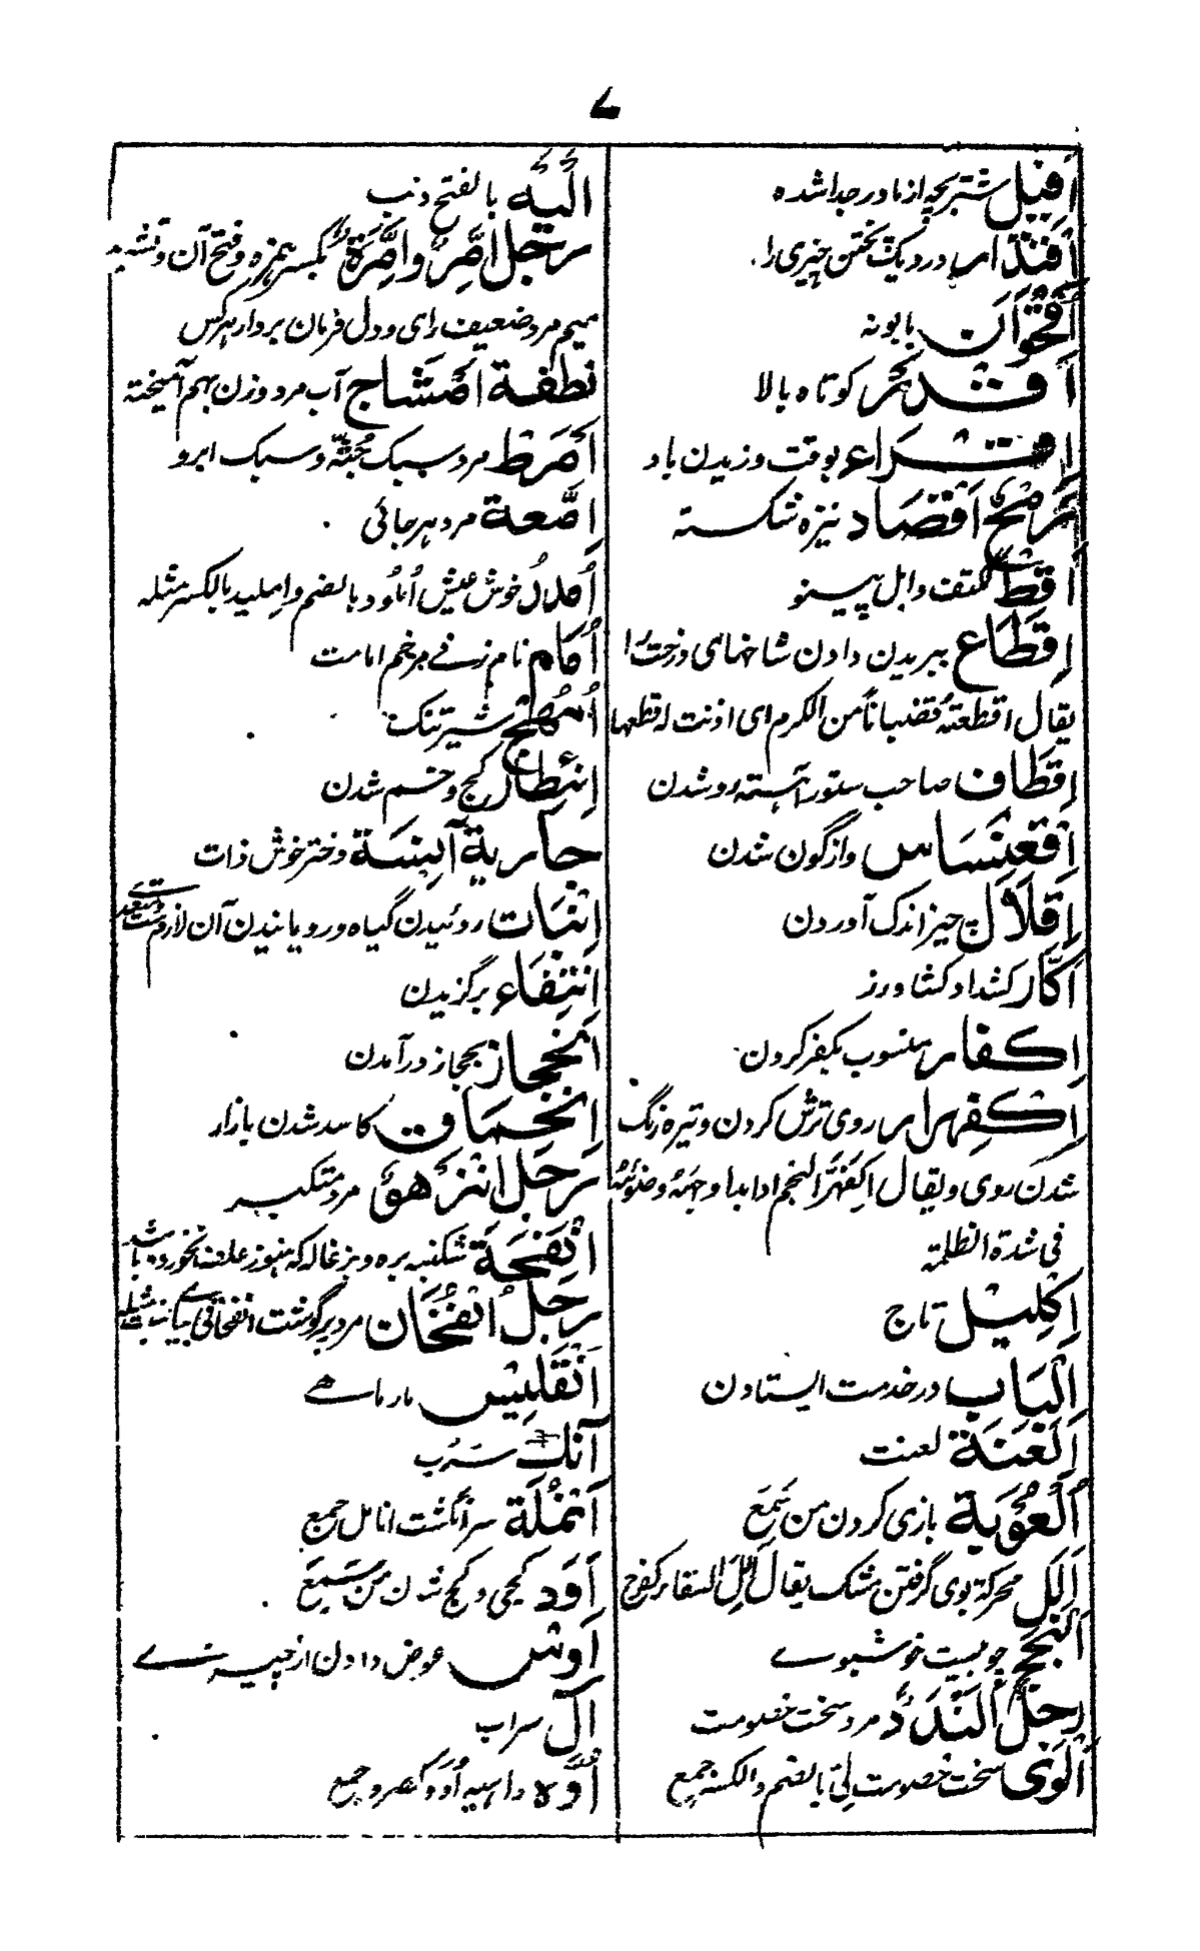 ۷
اَفِیل شتر بچه از مادر جدا شده
اِقْتِدار در دیگ پختن چیزی را
اُقْحُوَان بابونه
اَقْدَر کوتاه بالا
اِقْرَاء بوقت وزیدن باد
رُمْحٌ اَقْصَاد نیزه شکسته
اَقِط ککتف وابل پینو
اِقْطَاع ببریدن دادن شاخهای درخت را
یقال اقطعته قضبانا من الکرم ای اذنت له قطعها
اِقْطَاف صاحب ستور آهسته رو شدن
اِقْعِنْسَاس واژگون شدن
اِقْلَال چیز اندک آوردن
اَکَّار کشداد کشاورز
اِکفار منسوب بکفر کردن
اِکْفِهرار روی ترش کردن و تیره رنگ
شدن روی و یقال اِکْفَهَرَّ النجم اذا بدا وجهه وضوئه
فی شدة الظلمة
اِکْلِیل تاج
اِلْبَاب در خدمت ایستادن
لعنت
اُلْعُوبَة بازی کردن من سَمِعَ
اَلَل محرکة بوی گرفتن مشک یقال اَلِلَ السقاء کفرح
چوبیست خوشبوے
رجلٌ اَلَنْدَدٌ مرد سخت خصومت
اَلْوَی سخت خصومت لِیّ بالضم والکسر جمع
اَلْیَة بالفتح دنب
رَجُلٌ اِمَّرٌ واِمَّرَةٌ بکسر همزه و فتح آن و تشدید
میم مرد ضعیف رای و دل فرمان بردار هرکس
نطفة اَمْشَاج آب مرد و زن بهم آمیخته
اَمْرَط مرد سبک جُثّه و سبک ابرو
اِمَّعة مرد هرجائی
خوش عیش اُملُود بالضم واِملید بالکسر مثله
اُمَام نام زنے مرخم امامت
اُمْهُج شیر تنک
کج و خم شدن
جاریة آنِسَة دختر خوش ذات
اِنْبَات روئیدن گیاه و رویانیدن آن لازم ست
اِنْتِقَاء برگزیدن
اِنْحِجاز بحجاز درآمدن
اِنْحِمَاق کاسد شدن بازار
رَجُل اِنْزَهْوٌ مرد متکبر
اِنْفَحَة شکنبه بره و بزغاله که هنوز علف نخورده باشد
رجل اُنْفُخَان مرد پرگوشت
اَنْقَلِیس مار ماهے
آنُک سرب
اَنْمُلَة سرانگشت انامل جمع
اَوَد کجی و کج شدن من سَمِعَ
اَوْس عوض دادن از چیزے
آل سراب
داهیه اُوَر کصرد جمع